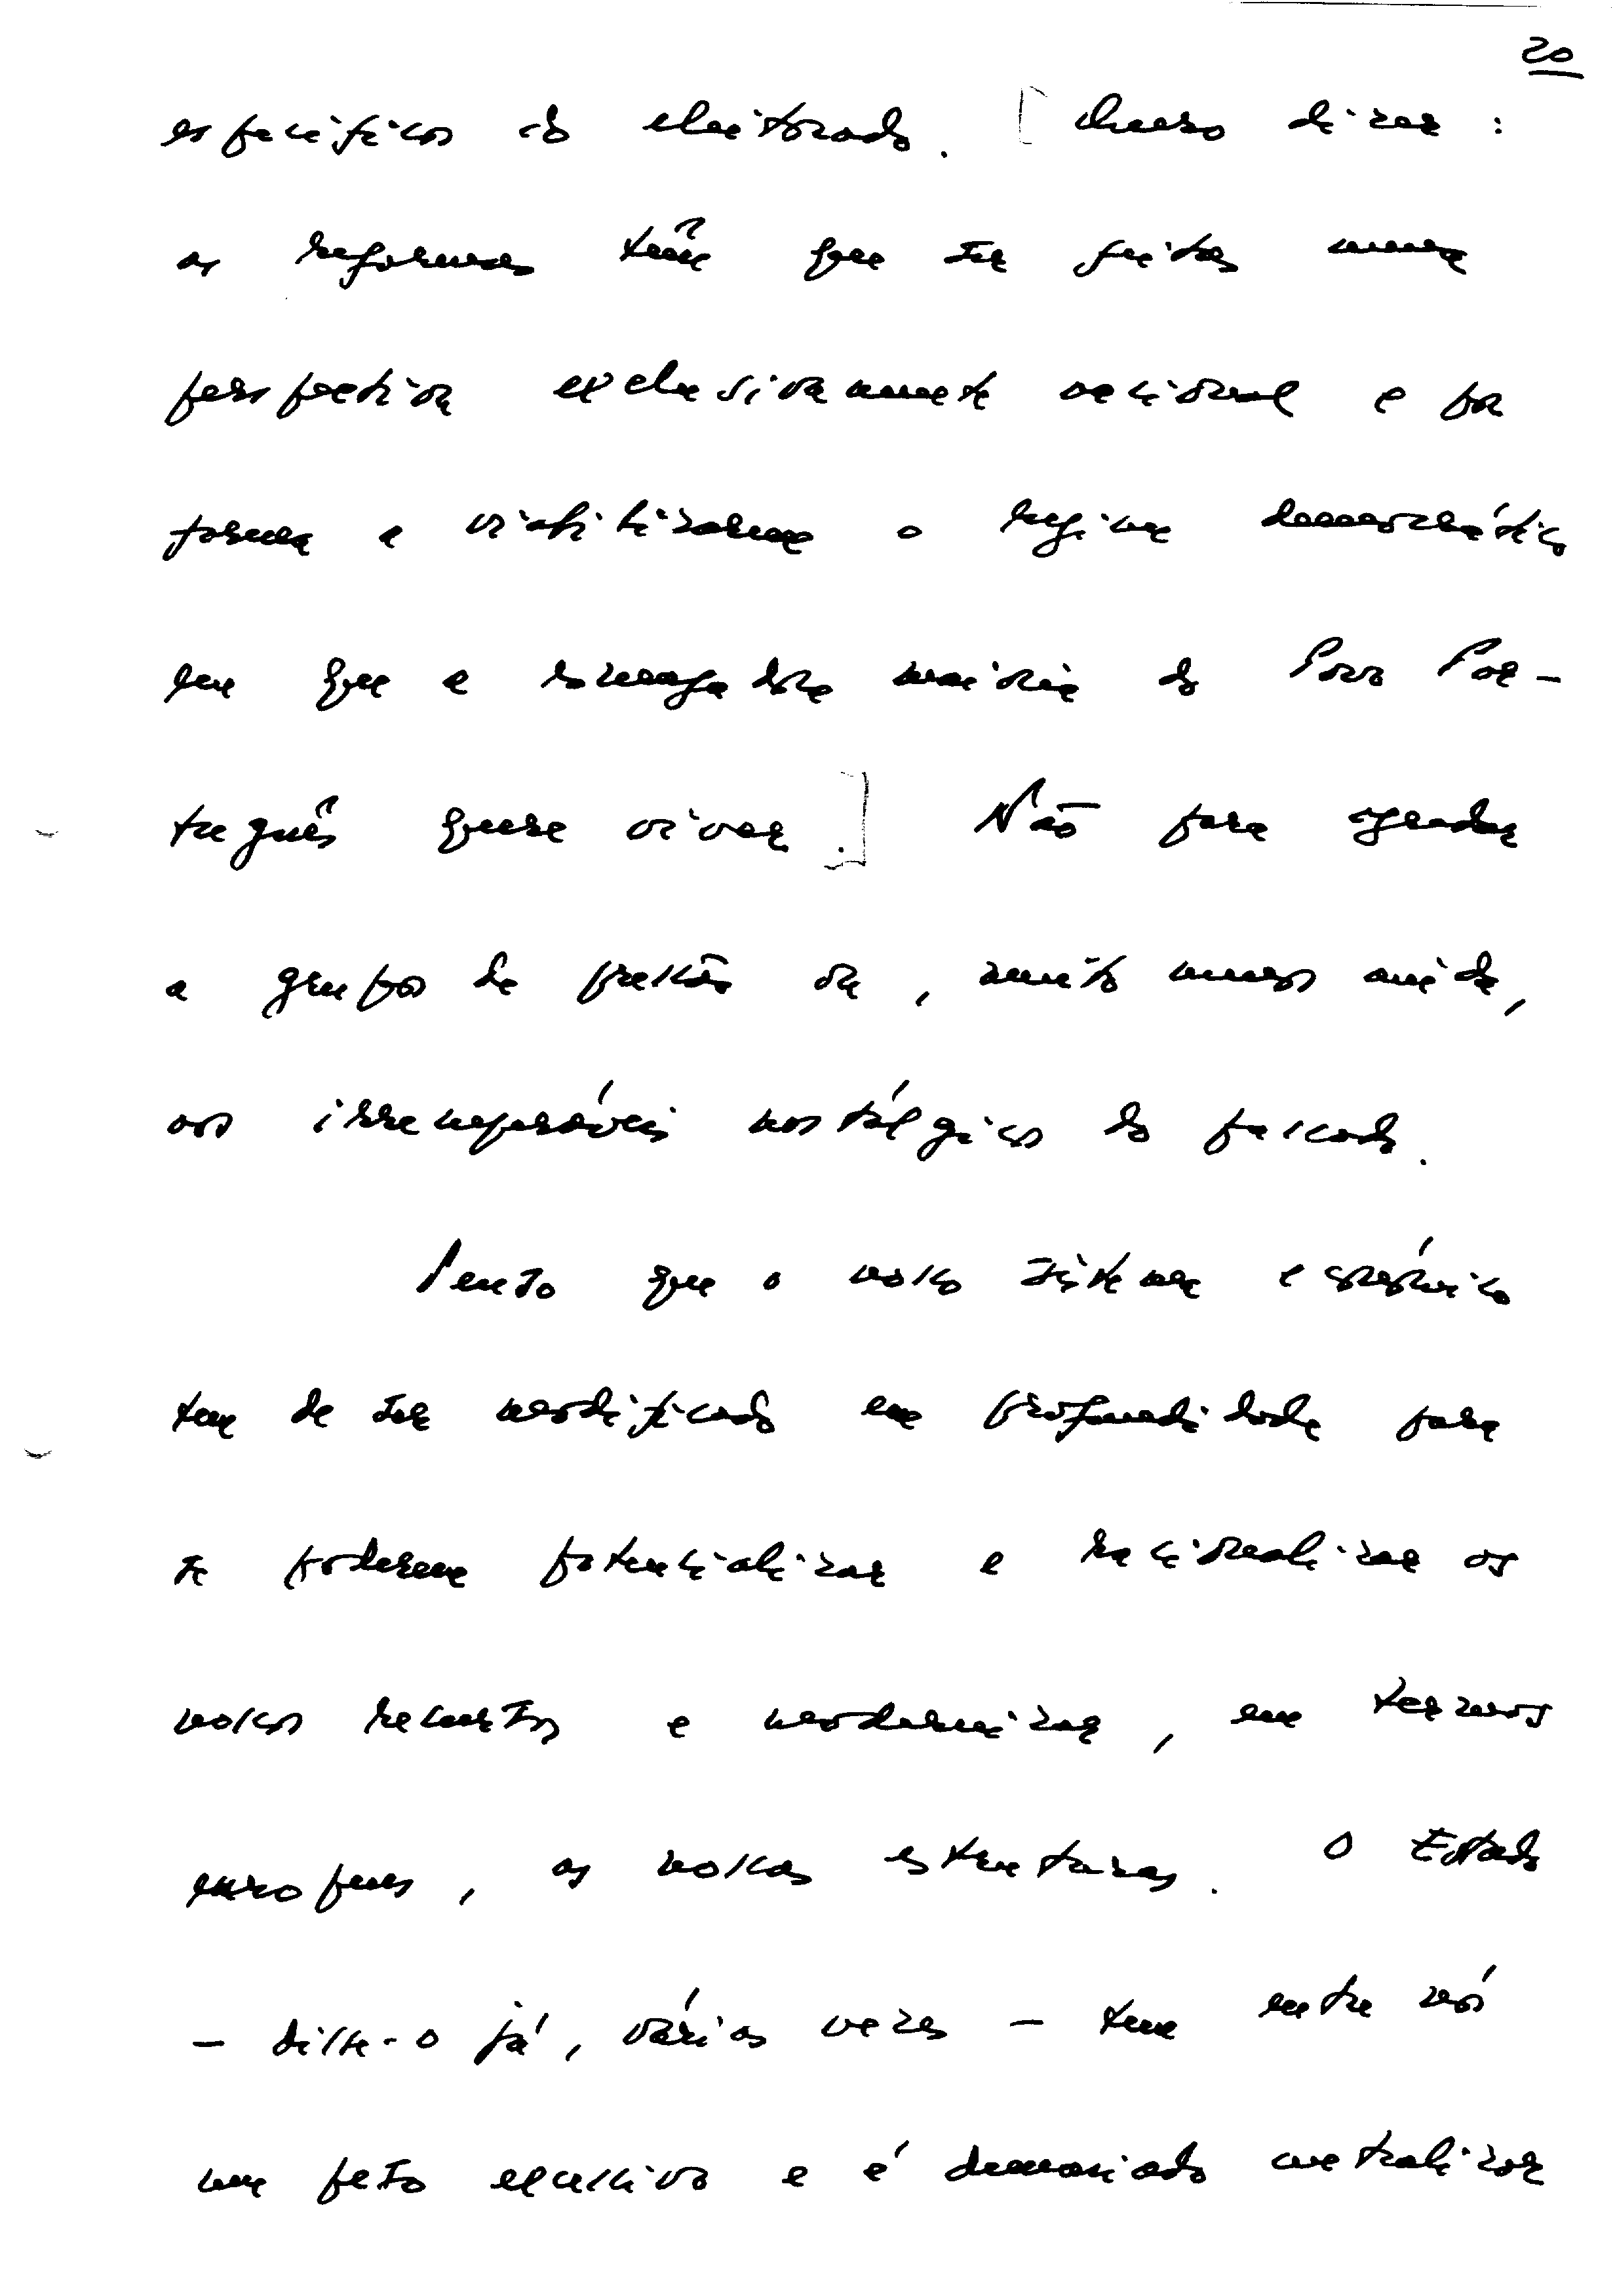 20
específicos do eleitorado. [Quero dizer:
as reformas têm que ser feitas numa
perspectiva exclusivamente nacional e por
forma a viabilizarem o regime democrático
em que a esmagadora maioria do Povo Por-
tuguês quere viver.] Não para agradar
a grupos de pressão ou, muito menos ainda,
aos irrecuperáveis nostálgicos do passado.
Penso que o nosso sistema económico
tem de ser modificado em profundidade para
se poderem potencializar e racionalizar os
nossos recursos e modernizar, em termos
europeus, as nossas estruturas. O Estado
- disse-o já, várias vezes - tem entre nós
um peso excessivo e é demasiado centralizador